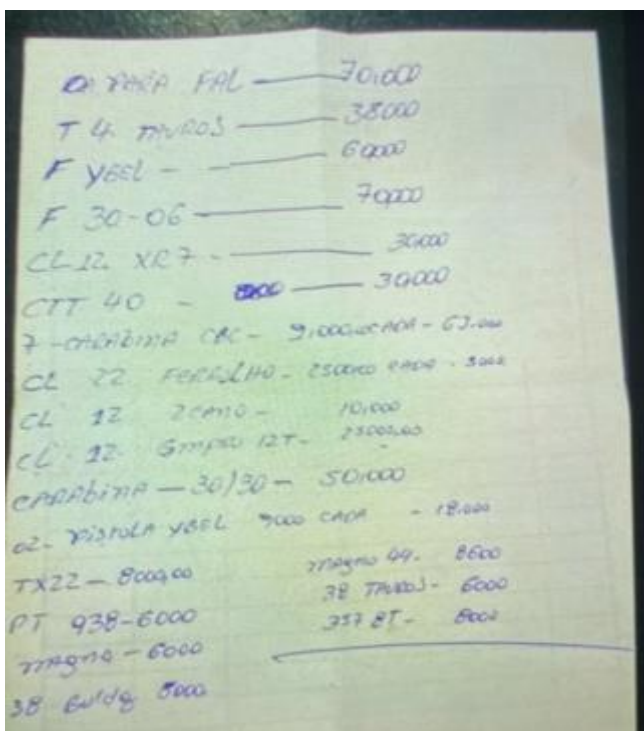 PARA FAL — 70,000
T 4 TAUROS — 38000
F YBEL - — 60,000
F 30-06 — 70,000
CL 12 XR7 - — 30,000
CTT 40 - — 30,000
7 - CARABINA CBC - 9,000,00 CADA - 63.000
CL 22 FERROLHO - 2500,00 CADA - 5000
CL 12 2 CANO - 10,000
CL 12 12T - 25000,00
CARABINA — 30/30 - 50,000
02 - PISTOLA YBEL 9000 CADA - 18.000
TX22 — 8000,00
PT 938 - 6000
magna - 6000
38 8000
magno 44 - 8600
38 TAUROS - 6000
357 8T - 8000